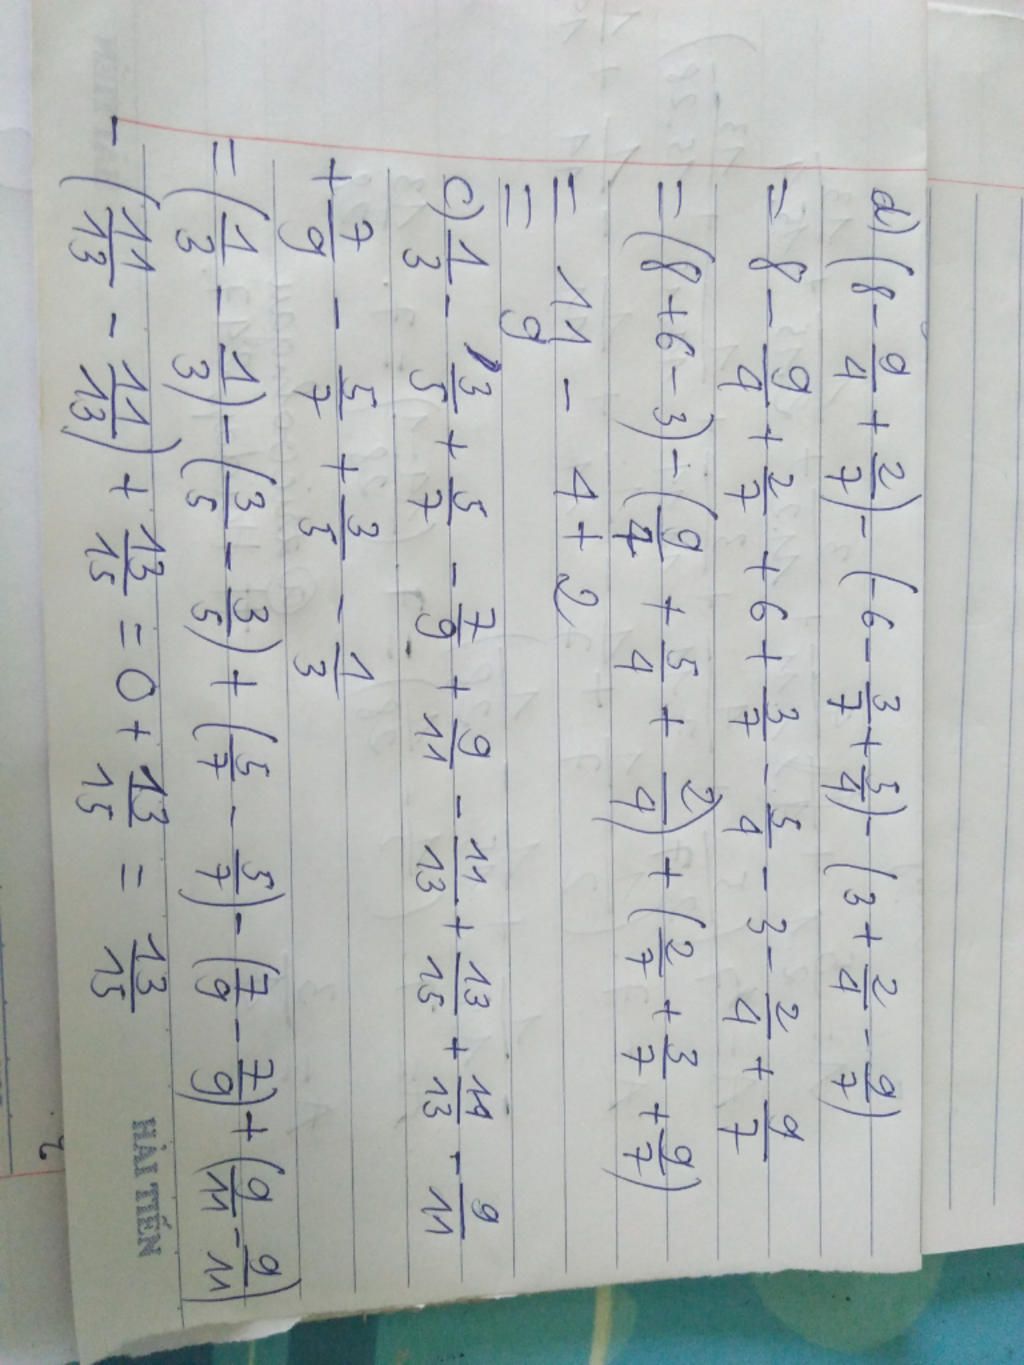 d) (8 - 9/4 + 2/7) - (-6 - 3/7 + 5/4) - (3 + 2/4 - 9/7)
= 8 - 9/4 + 2/7 + 6 + 3/7 - 5/4 - 3 - 2/4 + 9/7
= (8 + 6 - 3) - (9/4 + 5/4 + 2/4) + (2/7 + 3/7 + 9/7)
= 11 - 4 + 2
= 9
c) 1/3 - 3/5 + 5/7 - 7/9 + 9/11 - 11/13 + 13/15 + 11/13 - 9/11
+ 7/9 - 5/7 + 3/5 - 1/3
= (1/3 - 1/3) - (3/5 - 3/5) + (5/7 - 5/7) - (7/9 - 7/9) + (9/11 - 9/11)
- (11/13 - 11/13) + 13/15 = 0 + 13/15 = 13/15
HẢI TIẾN